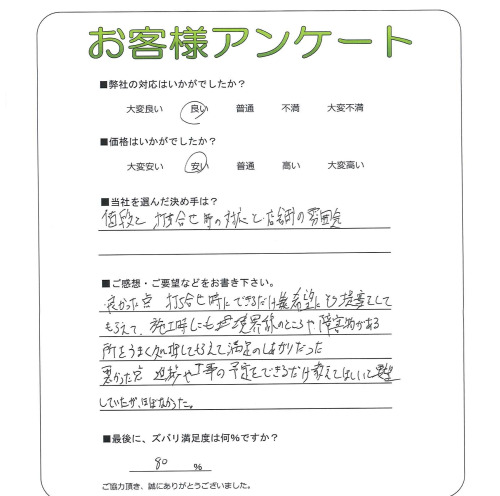 お客様アンケート
■弊社の対応はいかがでしたか?
大変良い 良い 普通 不満 大変不満
■価格はいかがでしたか?
大変安い 安い 普通 高い 大変高い
■当社を選んだ決め手は?
価段と 打合せ時の対応と、店舗の雰囲気
■ご感想・ご要望などをお書き下さい。
良かった点 打合せ時にできるだけ希望にそう提案をして
もらえて、施工時にも境界線のところや障害物がある
所をうまく処理してもらえて満足のしあがりだった
悪かった点 進捗や工事の予定をできるだけ教えてほしいと要望
していたが、ほぼなかった。
■最後に、ズバリ満足度は何%ですか?
80 %
ご協力頂き、誠にありがとうございました。